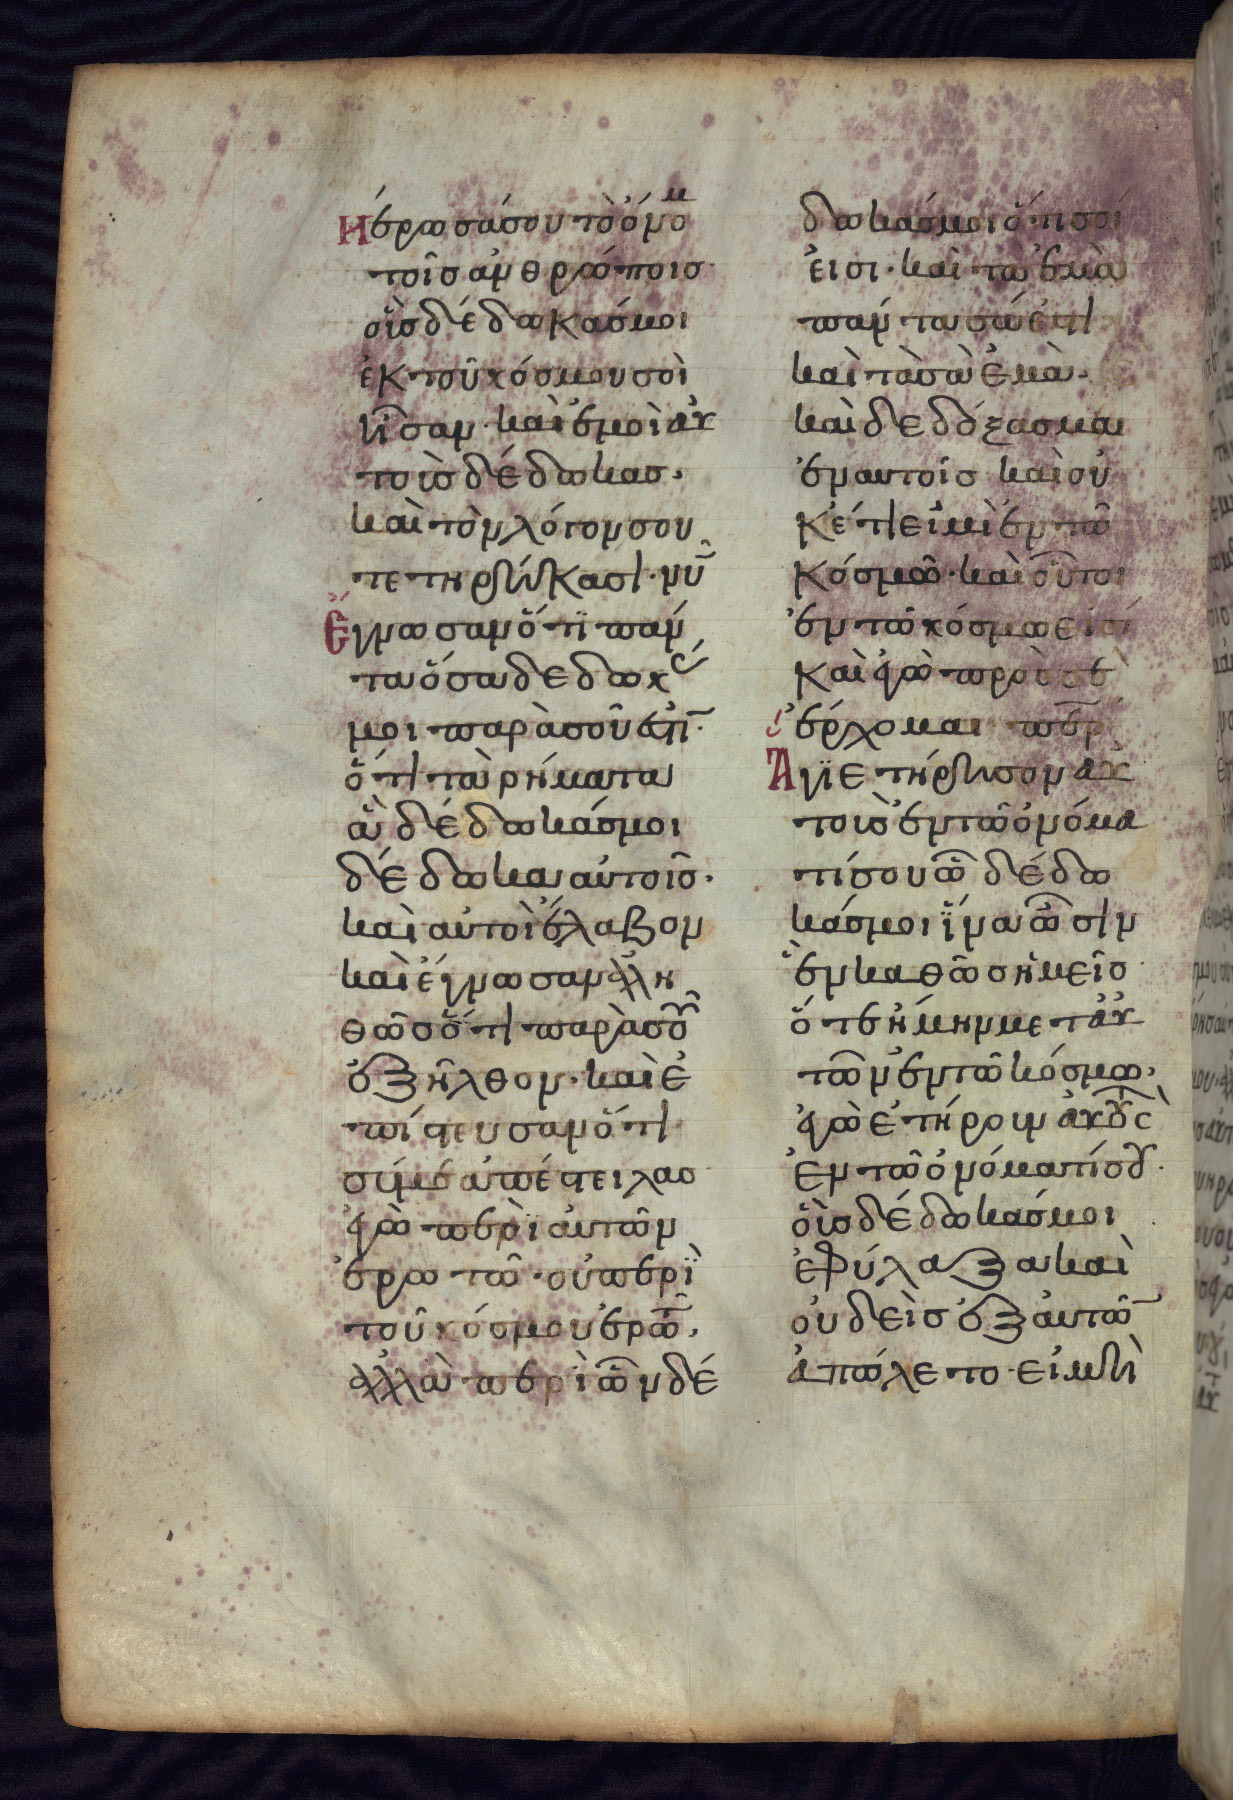 ἠἐρωσάσου τὸ ὀνομ
τοῖς ἀνθρώποις·
οἷς δέδωκάσμοι
ἐκ τοῦ κόσμου σοὶ
ἦσαν· καὶ ἐμοὶ αὐ
τοὶς δέδωκας·
καὶ τὸν λόγον σου
τετηρήκασι· νῦ
ἔγνωσαν ὅτι πάν
τα ὅσα δέδωκ
μοι παρὰ σοῦ ἐστι·
ὅτι τὰ ρήματα
ἃ δέδωκάσμοι
δέδωκα αὐτοῖς·
καὶ αὐτοὶ ἔλαβον
καὶ ἔγνωσαν ἀλη
θῶς ὅτι παρὰ σοῦ
ἐξῆλθον· καὶ ἐ
πίστευσαν ὅτι
σύ μὲ ἀπέστειλας
ἐγὼ περὶ αὐτῶν
ἐρωτῶ· οὐ περὶ
τοῦ κόσμου ἐρωτῶ·
ἀλλὰ περὶ ὧν δέ
δωκάσμοι ὅτι σοί
εἰσι· καὶ τὰ ἐμὰ
πάντα σά ἐστι
καὶ τὰ σὰ ἐμὰ·
καὶ δεδόξασμαι
ἐν αυτοῖς καὶ οὐ
κέτι εἰμὶ ἐν τῶ
κόσμω· καὶ οὗτοι
ἐν τῶ κόσμω εἰσί
καὶ ἐγὼ πρὸς σὲ
ἔρχομαι πὲρ
ἅγιε τήρησον αὐ
τοὺς ἐν τῶ ὀνόμα
τί σου ὧ δέδω
κάσμοι ἵνα ὦσιν
ἓν καθὼς ἡμεῖς
ὅτε ἤμην μετ αὐ
τῶν ἐν τῶ κόσμω·
ἐγὼ ἐτήρουν αὐτοὺς
ἐν τῶ ὀνόματί σου·
οἷς δέδωκάσμοι
ἐφύλαξα καὶ
οὐδεὶς ἐξ αὐτῶ
ἀπώλετο· εἰ μὴ